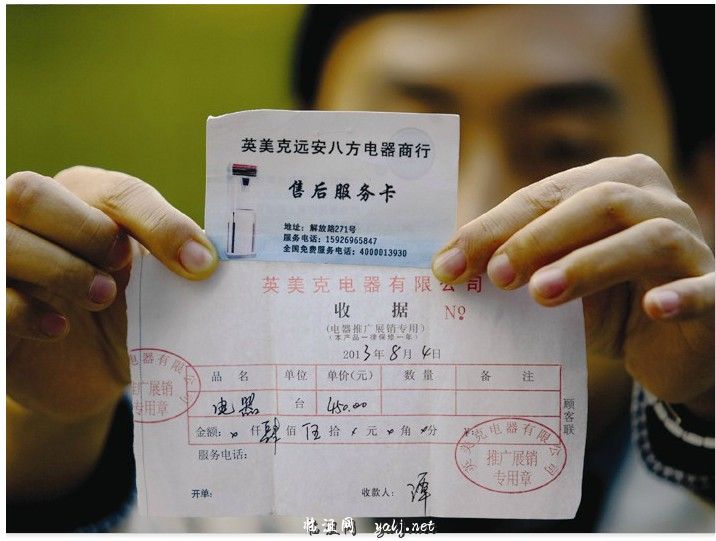 英美克远安八方电器商行
售后服务卡
地址：解放路271号
服务电话：15926965847
全国免费服务电话：4000013930
英美克电器有限公司
收 据 №
(电器推广展销专用)
(本产品一律保修一年)
2013年8月4日
品 名 单位 单价(元) 数 量 备 注
电器 台 450.00
金额：× 仟 肆 佰 伍 拾 × 元 × 角 × 分 ¥
服务电话：
开单： 收款人：谭
顾客联
电器有限公司
推广展销
专用章
英美克电器有限公司
推广展销
专用章
yakj.net